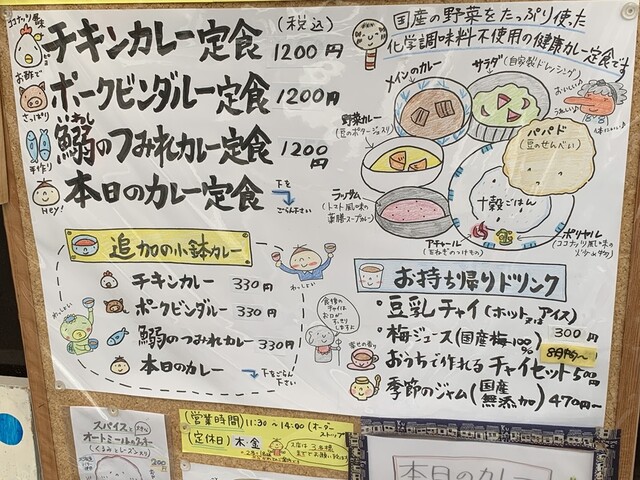 ココナッツ風味
チキンカレー定食 (税込) 1200円
お酢で
さっぱり
ポークビンダルー定食 1200円
手作り
鰯のつみれカレー定食 1200円
いわし
Hey!
本日のカレー定食 下をごらん下さい
国産の野菜をたっぷり使った
化学調味料不使用の健康カレー定食です
メインのカレー
サラダ(自家製ドレッシング)
おいしい
うれしい
野菜カレー
(豆のポタージュ入り)
パパド
(豆のせんべい)
ラッサム
(トマト風味の
薬膳スープカレー)
十穀ごはん
アチャール
(玉ねぎのつけもの)
ポリヤル
(ココナッツ風味の
追加の小鉢カレー
チキンカレー 330円
ポークビンダルー 330円
鰯のつみれカレー 330円
本日のカレー 下をごらん下さい
わっしょい
わっしょい
食後の
チャイは
お口が
すっきり
しますよ
お持ち帰りドリンク
・豆乳チャイ(ホット又はアイス)
・梅ジュース(国産梅100%) 300円
8月中旬~
幸せの香り
・おうちで作れるチャイセット500円
・季節のジャム(国産無添加)470円~
スパイスと
オートミールのクッキー
(くるみとレーズン入り)
200円
(営業時間) 11:30~14:00 (オーダーストップ)
(定休日) 木・金
本日のカレー